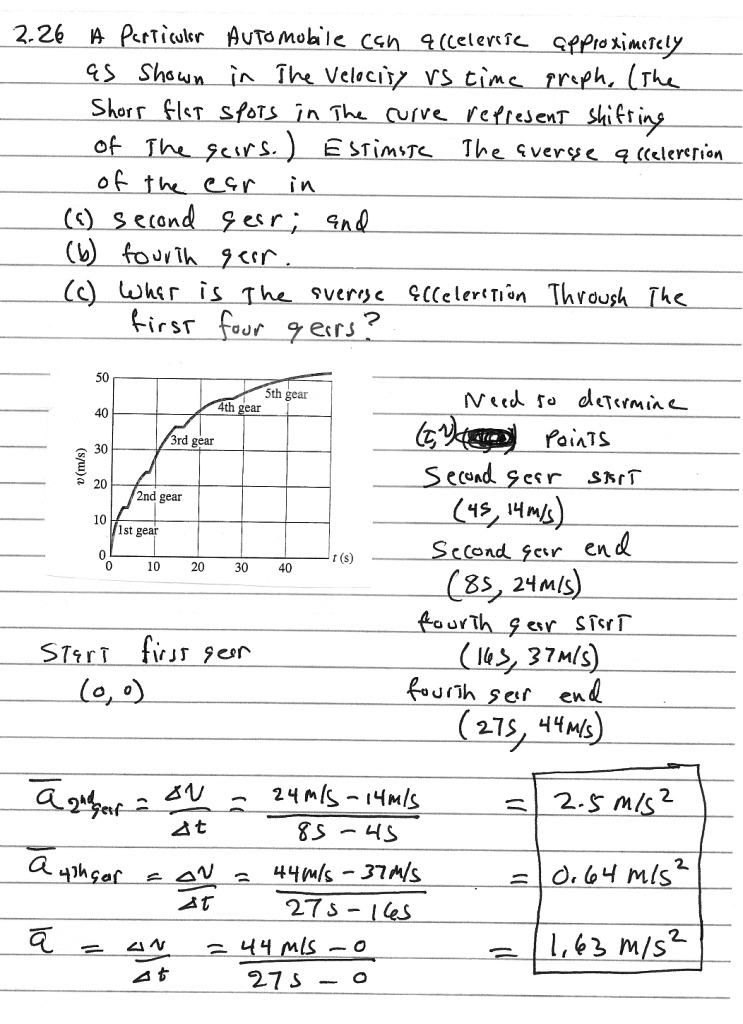 2.26 A Particular Automobile can accelerate approximately
as shown in The Velocity vs time graph. (The
Short flat spots in The curve represent shifting
of The gears.) Estimate The average acceleration
of the car in
(a) second gear; and
(b) fourth gear.
(c) What is The average acceleration Through The
first four gears?
50
40
30
20
10
0
v (m/s)
5th gear
4th gear
3rd gear
2nd gear
1st gear
0 10 20 30 40
t (s)
Need to determine
(t, v) Points
Second gear start
(4s, 14m/s)
Second gear end
(8s, 24m/s)
fourth gear start
(16s, 37m/s)
fourth gear end
(27s, 44m/s)
Start first gear
(0, 0)
a̅ 2nd gear = Δv/Δt = 24m/s - 14m/s / 8s - 4s = 2.5 m/s²
a̅ 4th gear = Δv/Δt = 44m/s - 37m/s / 27s - 16s = 0.64 m/s²
a̅ = Δv/Δt = 44 m/s - 0 / 27s - 0 = 1.63 m/s²